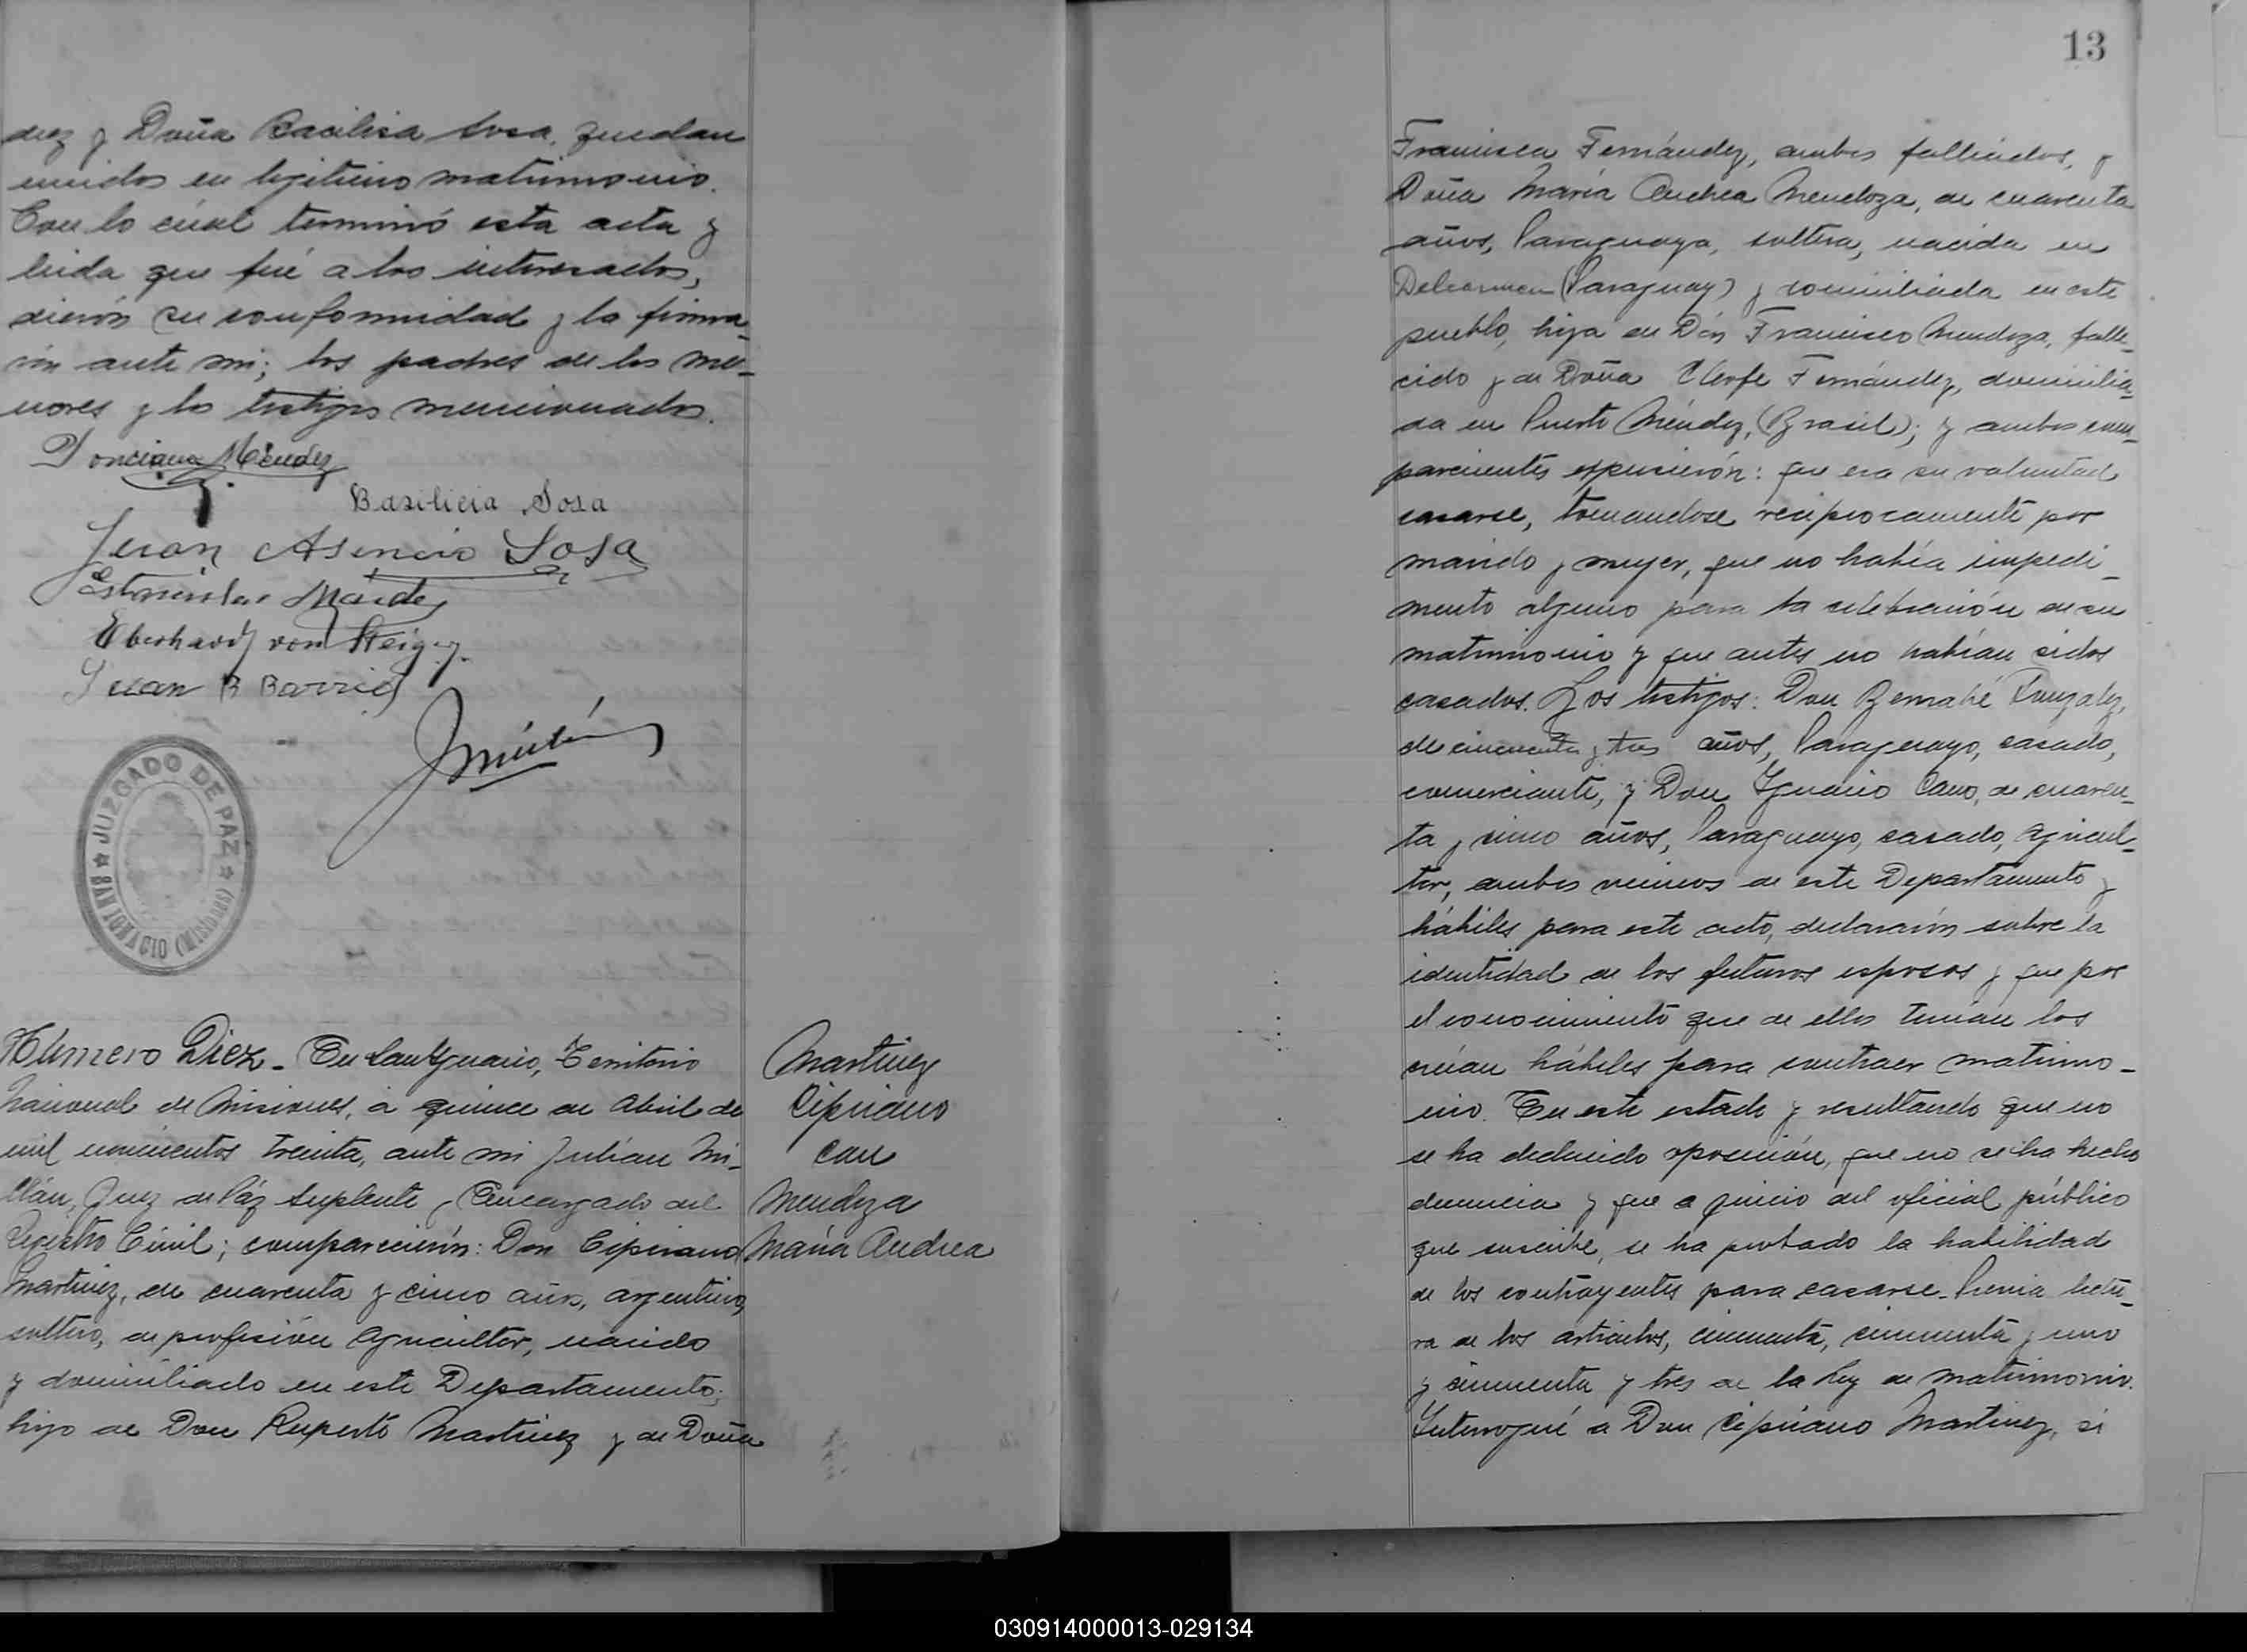 dez y Doña Basilisa Sosa, quedan
unidos en legitimo matrimonio.
Con lo cúal terminó esta acta y
leida que fué a los interesados,
dierón su conformidad y la firma-
rón ante mi; los padres de los me-
nores y los testigos mencionados.
Ponciano Méndez
Basilicia Sosa
Juan Asencio Sosa
Estanislao Mendez
Eberhard von Steiger
Juan B Barrios
JUZGADO DE PAZ
SAN IGNACIO (Misiones)
Número Diez - En San Ygnacio, Territorio
Nacional de Misiones, a quince de Abril de
mil novecientos treinta, ante mi Julián Mi-
llán, Juez de Páz Suplente, Encargado del
Registro Civil; comparecierón: Don Cipriano
Martinez, de cuarenta y cinco años, argentino,
soltero, de profesión Agricultor, nacido
y domiciliado en este Departamento;
hijo de Don Ruperto Martinez y de Doña
Martinez
Cipriano
con
Mendoza
Maria Andrea
13
Francisca Fernández, ambos fallecidos, y
Doña Maria Andrea Mendoza, de cuarenta
años, Paraguaya, soltera, nacida en
Delcarmen (Paraguay) y domiciliada en este
pueblo, hija de Dón Francisco Mendoza, falle-
cido y de Doña Clerfe Fernández, domicilia-
da en Puerto Méndez, (Brasil); y ambos com-
parecientes expusierón: que era su voluntad
casarse, tomandose reciprocamente por
marido y mujer, que no habia impedi-
mento alguno para la celebración de su
matrimonio y que antes no habian sidos
casados. Los testigos: Don Bernabé Gonzalez,
de cincuenta y tres años, Paraguayo, casado,
comerciante, y Don Ygnacio Cano, de cuaren-
ta y cinco años, Paraguayo, casado, Agricul-
tor, ambos vecinos de este Departamento y
hábiles para este acto, declararón sobre la
identidad de los futuros esposos y que por
el conocimiento que de ellos tenian los
creian hábiles para contraer matrimo-
nio. En este estado y resultando que no
se ha deducido oposición, que no se ha hecho
denuncia y que a juicio del oficial público
que suscribe, se ha probado la habilidad
de los contrayentes para casarse. Previa lectu-
ra de los articulos, cincuenta, cincuenta y uno
y cincuenta y tres de la Ley de matrimonio.
Interrogué a Don Cipriano Martinez, si
030914000013-029134